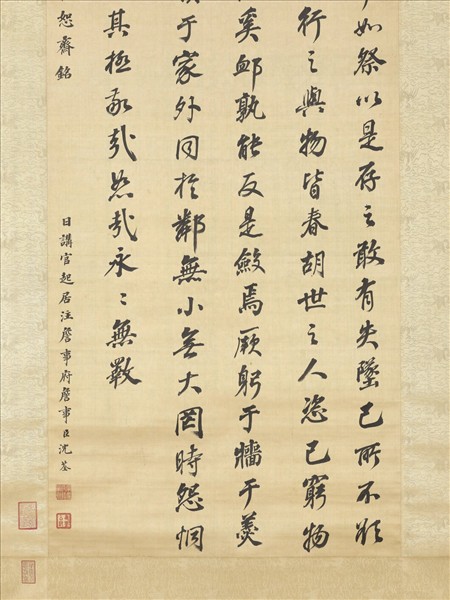 如祭以是存之敢有失墜己所不欲
行之與物皆春胡世之人恣己窮物
奚卹孰能反是斂焉厥躬于牆于羹
于家外同於鄰無小無大罔時怨恫
其極敬哉恕哉永〻無斁
恕齋銘
日講官起居注詹事府詹事臣沈荃